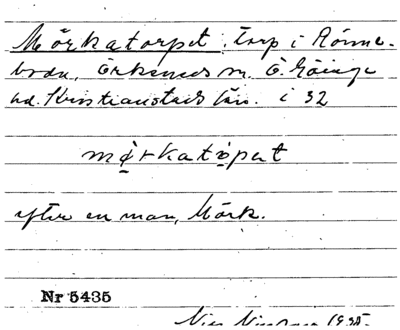 Mörkatorpet, torp i Rönne-
boda, Örkeneds sn. Ö. Göinge
hd. Kristianstads län. i 32
mörkatåpət
efter en man, Mörk.
Nr 5435
Nils